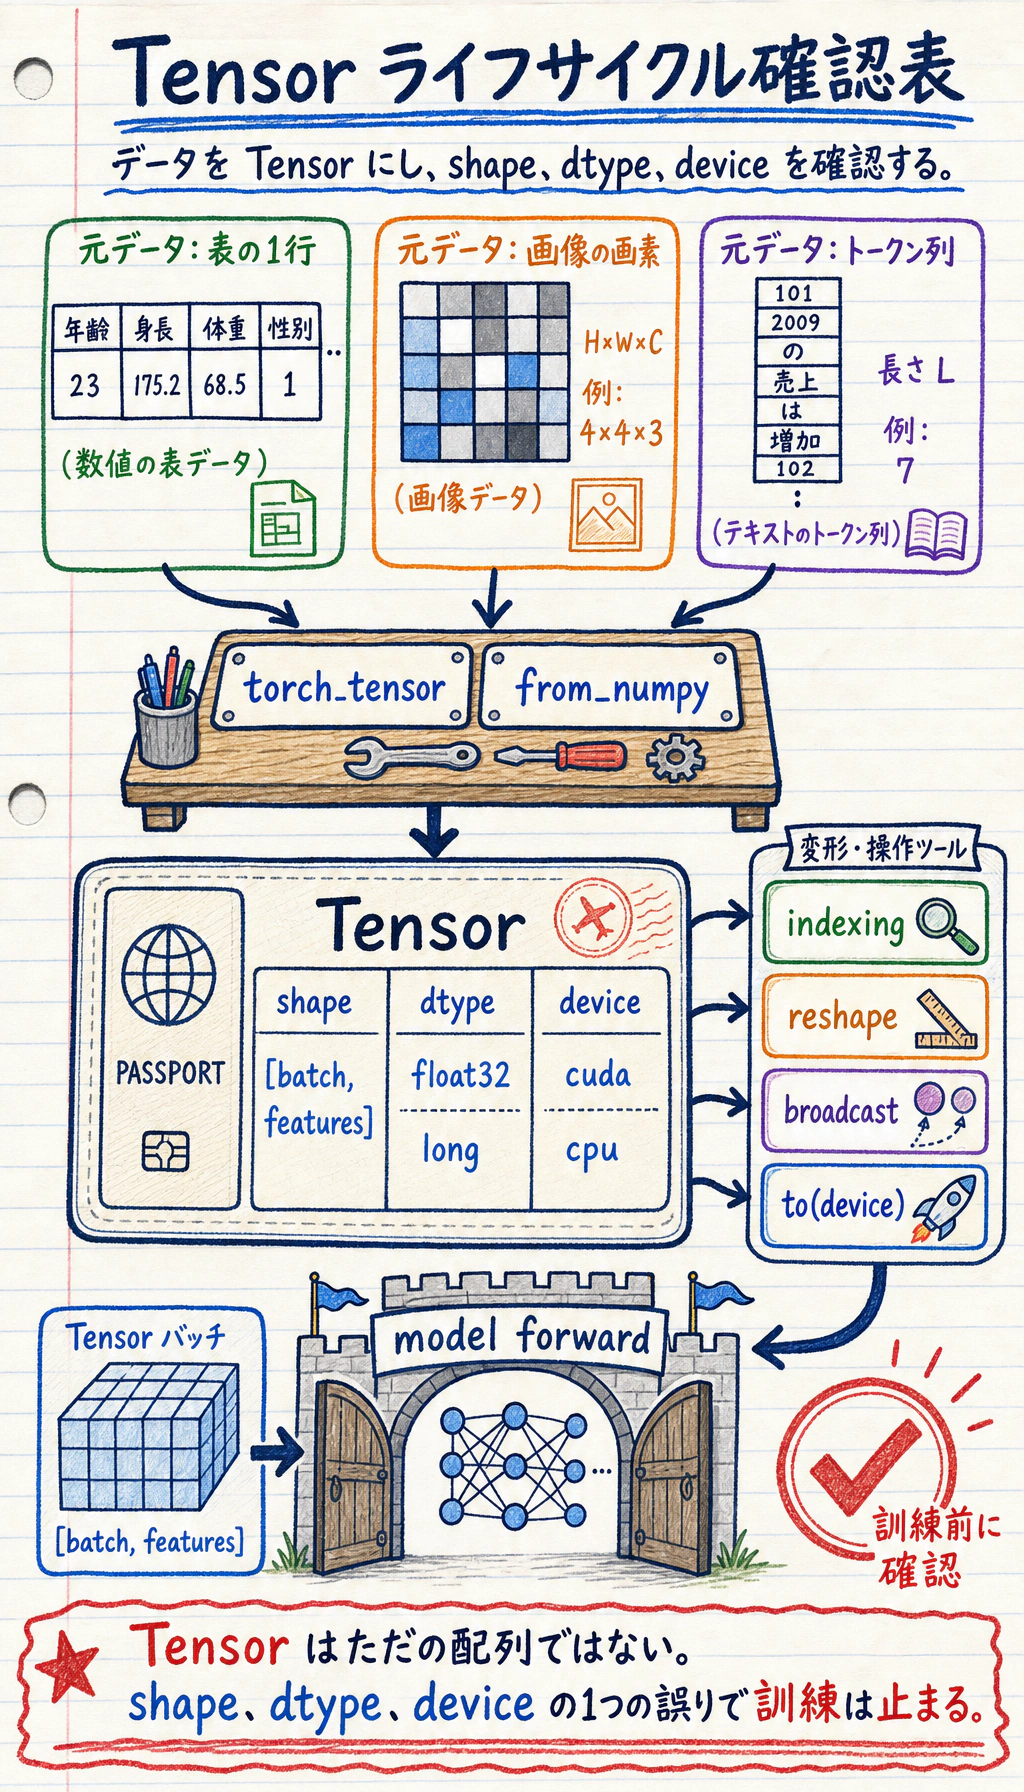 Tensor ライフサイクル確認表
データを Tensor にし、shape、dtype、device を確認する。
元データ: 表の1行
年齢 身長 体重 性別
23 175.2 68.5 1
(数値の表データ)
元データ: 画像の画素
H×W×C
例:
4×4×3
(画像データ)
元データ: トークン列
101
2009
の
売上
は
増加
102
長さ L
例:
7
(テキストのトークン列)
torch_tensor
from_numpy
PASSPORT
Tensor
shape dtype device
[batch, features]
float32
long
cuda
cpu
変形・操作ツール
indexing
reshape
broadcast
to(device)
Tensor バッチ
[batch, features]
model forward
訓練前に
確認
Tensor はただの配列ではない。
shape、dtype、device の1つの誤りで訓練は止まる。